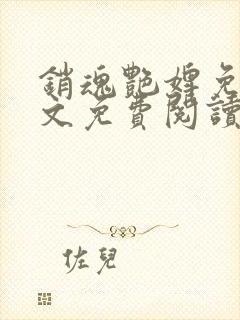 銷魂艷婢免
文免費閱讀
佐兒